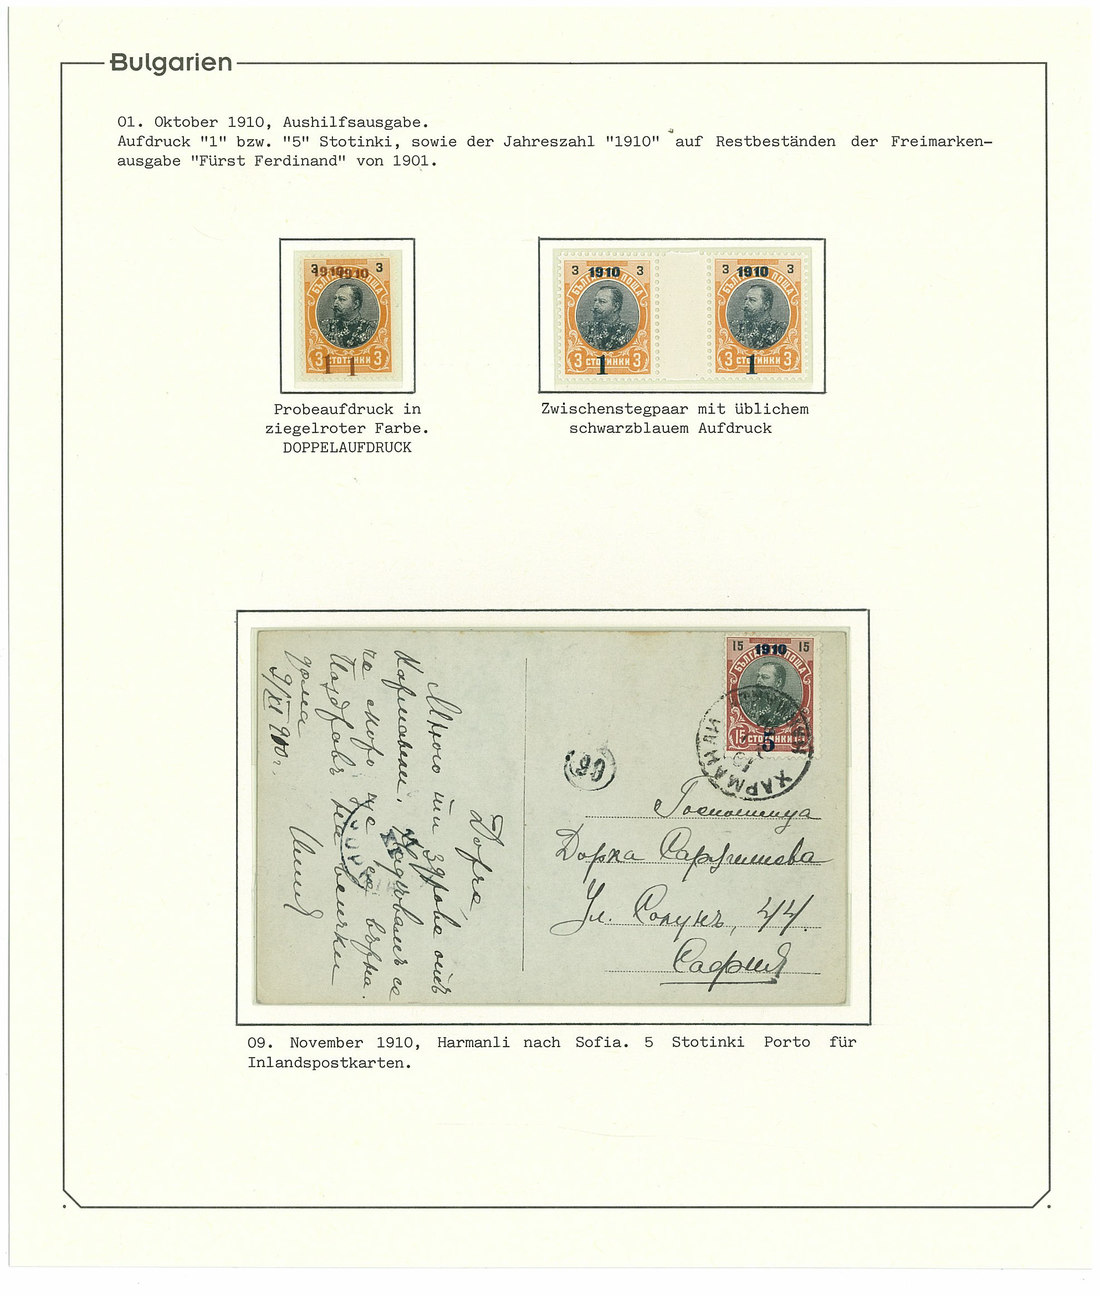 Bulgarien
01. Oktober 1910, Aushilfsausgabe.
Aufdruck "1" bzw. "5" Stotinki, sowie der Jahreszahl "1910" auf Restbeständen der Freimarken-
ausgabe "Fürst Ferdinand" von 1901.
3 1910 1910 3
БЪЛГАРСКА ПОЩА
3 СТОТИНКИ 3
1 1
3 1910 3
БЪЛГАРСКА ПОЩА
3 СТОТИНКИ 3
1
3 1910 3
БЪЛГАРСКА ПОЩА
3 СТОТИНКИ 3
1
Probeaufdruck in
ziegelroter Farbe.
DOPPELAUFDRUCK
Zwischenstegpaar mit üblichem
schwarzblauem Aufdruck
15 1910 15
БЪЛГАРСКА ПОЩА
15 СТОТИНКИ
5
ХАРМАНЛИ
Дорка,
Много ти здраве отъ
Харманли.
че скоро ще се върна.
Поздравъ на всички
дома
9/XI 910 г.
Госпожица
Дорка
Ул. Солунъ, 44.
София
09. November 1910, Harmanli nach Sofia. 5 Stotinki Porto für
Inlandspostkarten.